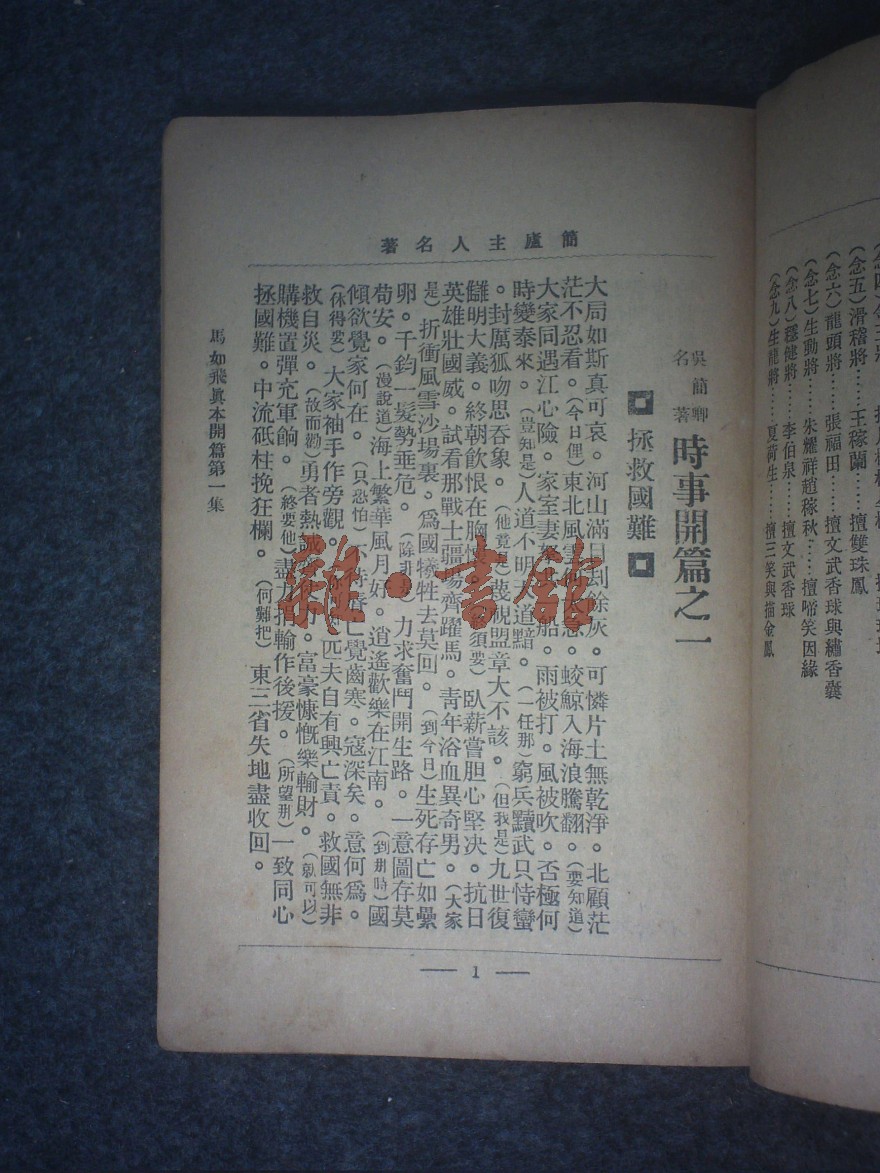 (念五)滑稽將……王稼蘭……擅雙珠鳳
(念六)龍頭將……張福田……擅文武香球與繡香囊
(念七)生動將……朱耀祥趙稼秋……擅啼笑因緣
(念八)穩健將……李伯泉……擅文武香球
(念九)生龍將……夏荷生……擅三笑與描金鳳
簡廬主人名著
吳簡卿名著
時事開篇之一
拯救國難
大局如斯真可哀。河山滿目刦餘灰。可憐片土無乾淨。北顧茫
茫不忍看。(今日俚)東北風雲急。蛟鯨入海浪騰翻。(要知道)
大家同遇江心險。家室妻船。雨被打。風被吹。否極何
時變泰來。(豈知是)人道不明道黯。(一任那)窮兵黷武只恃蠻
。封厲狐吻思吞象。(他竟是)蔑視盟章大不該。(但我是)九世復
讎明大義。終朝飲恨在胸懷。(必須要)臥薪嘗胆心堅决。抗日
英雄壯國威。試看那戰士疆場齊躍馬。靑年浴血異奇男。(大家
是)折衝風雪沙場裏。爲國犧牲去莫回。(到今日)生死存亡如纍
卵。千鈞一髮勢垂危。力求奮鬥開生路。一意圖存莫
苟安。(漫說道)海上繁華風月好。逍遙歡樂在江南。(到那時)國
傾欲覺家何在。(只恐怕)亡覺齒寒。寇深矣。意何爲。
(休得要)大家袖手作旁觀。匹夫自有興亡責。救國無非
救自災。(故而勸)勇者熱誠。富豪慷慨樂輸財。(就可以)
購機置彈充軍餉。(終要他)盡力捐輸作後援。(所望那)一致同心
拯國難。中流砥柱挽狂欄。(何難把)東三省失地盡收回。
馬如飛眞本開篇第一集
— 1 —
雜·書館